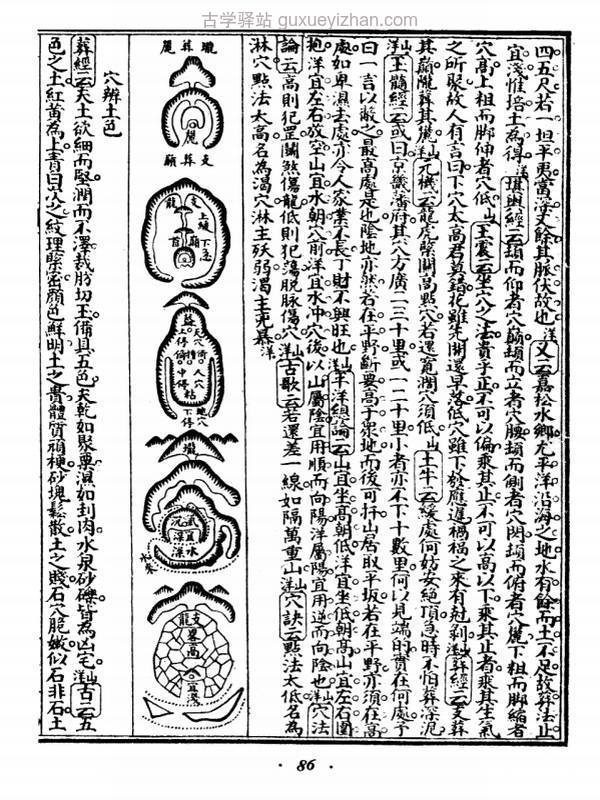 古学驿站 guxueyizhan.com
四五尺若一坦平夷當深丈餘其脉伏故也洋又云嘉松水鄉尤平洋沿海之地水有餘而土不足故葬法止
宜淺惟培土為得洋堪輿經云頭而仰者穴巔頭而立者穴腰頭而側者穴閃頭而俯者穴麓下粗而脚縮者
穴高上粗而脚伸者穴低山玉震云坐穴之法貴乎正不可以偏乘其止不可以高以下乘其止者乘其生氣
之所聚故人有言曰下穴太高君莫錯花雖先開還早落低穴雖下發應遲禍福之來有尅剥洋葬經云支葬
其巔隴葬其麓山元機云龍虎緊關高點穴若還寬濶穴須低山土牛云緩處何妨安絶頂急時不怕葬深泥
洋玉髓經云或曰京畿藩府其穴方廣二三十里或一二十里小者亦不下十數里何以見端的實在何處予
曰一言以蔽之最高處是也陰地亦然若在平野斷要高于衆地而後可扦山居取平坂若在平野亦須在高
處如卑濕去處亦令人家業不長丁財不興旺也洋平洋總論云山宜坐高朝低洋宜坐低朝高山宜左右圍
抱洋宜左右放空山宜水朝穴前洋宜水冲穴後以山屬陰宜用順而向陽洋屬陽宜用逆而向陰也洋穴法
論云高則犯罡鬪煞傷龍低則犯蕩脱脉傷穴洋古歌云若還差一線如隔萬重山洋穴訣云點法太低名為
淋穴點法太高名為渴穴淋主殀弱渴主兇暴洋
隴葬麓
麓
支葬巔
支龍
上緩
下急
天穴
上停
人穴
中停
粘
地穴
下停
隴
沉
深
水
支龍
畧高
宜
穴辨土色
葬經云夫土欲細而堅潤而不澤裁肪切玉備具五色夫乾如聚粟濕如刲肉水泉砂礫皆為凶宅洋古云五
色之土紅黄為上青白次之紋理堅密顏色鮮明土之貴體質頑梗砂塊鬆散土之賤石穴脆嫩似石非石土
86